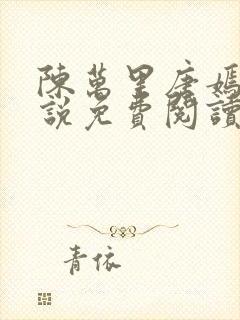 陳萬里唐嫣
說免費閱讀
青依